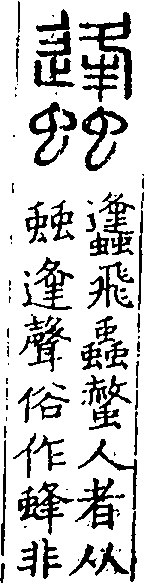 蠭
蠭飛蟲螫人者从
䖵逢聲俗作蜂非